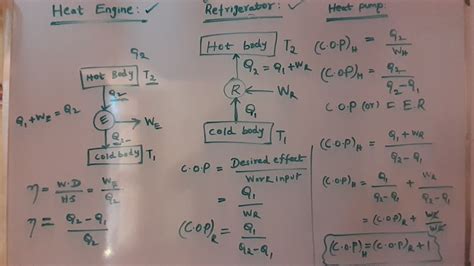 Heat Engine: ✓
Q2
Hot Body T2
Q2
Q1+WE=Q2
E
WE
Q1
Cold body T1
η = W.D/H.S = WE/Q2
η = Q2-Q1/Q2
Refrigerator: ✓
Hot body T2
Q2 = Q1+WR
R
WR
Q1
Cold body T1
C.O.P = Desired effect/Work input
= Q1/WR
(C.O.P)R = Q1/Q2-Q1
Heat pump:
(C.O.P)H = Q2/WH
(C.O.P)H = Q2/Q2-Q1
C.O.P (or) = E.R
(C.O.P)H = Q1+WR/Q2-Q1
(C.O.P)H = Q1/Q2-Q1 + WR/Q2-Q1
= (C.O.P)R + WR/WR
(C.O.P)H = (C.O.P)R + 1